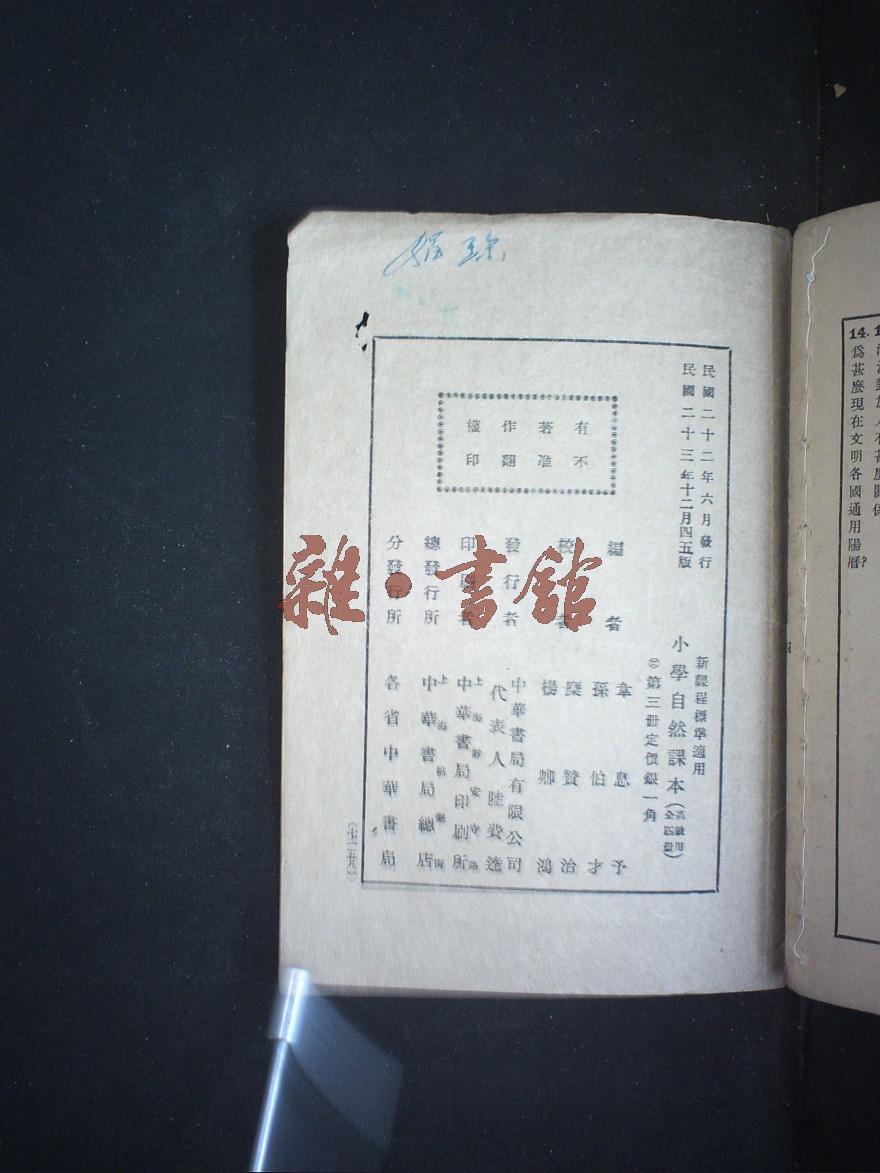 民國二十二年六月發行
民國二十三年十二月四五版
有著作權
不准翻印
新課程標準適用
小學自然課本(高級用 全四册)
第三冊定價銀一角
編者
韋息予
孫伯才
校者
糜贊治
楊卿鴻
發行者
中華書局有限公司
代表人陸費逵
印刷者
上海靜安寺路
中華書局印刷所
總發行所
上海棋盤街
中華書局總店
分發行所
各省中華書局
(七一五九)
雜·書館
14.
爲甚麼現在文明各國通用陽曆?